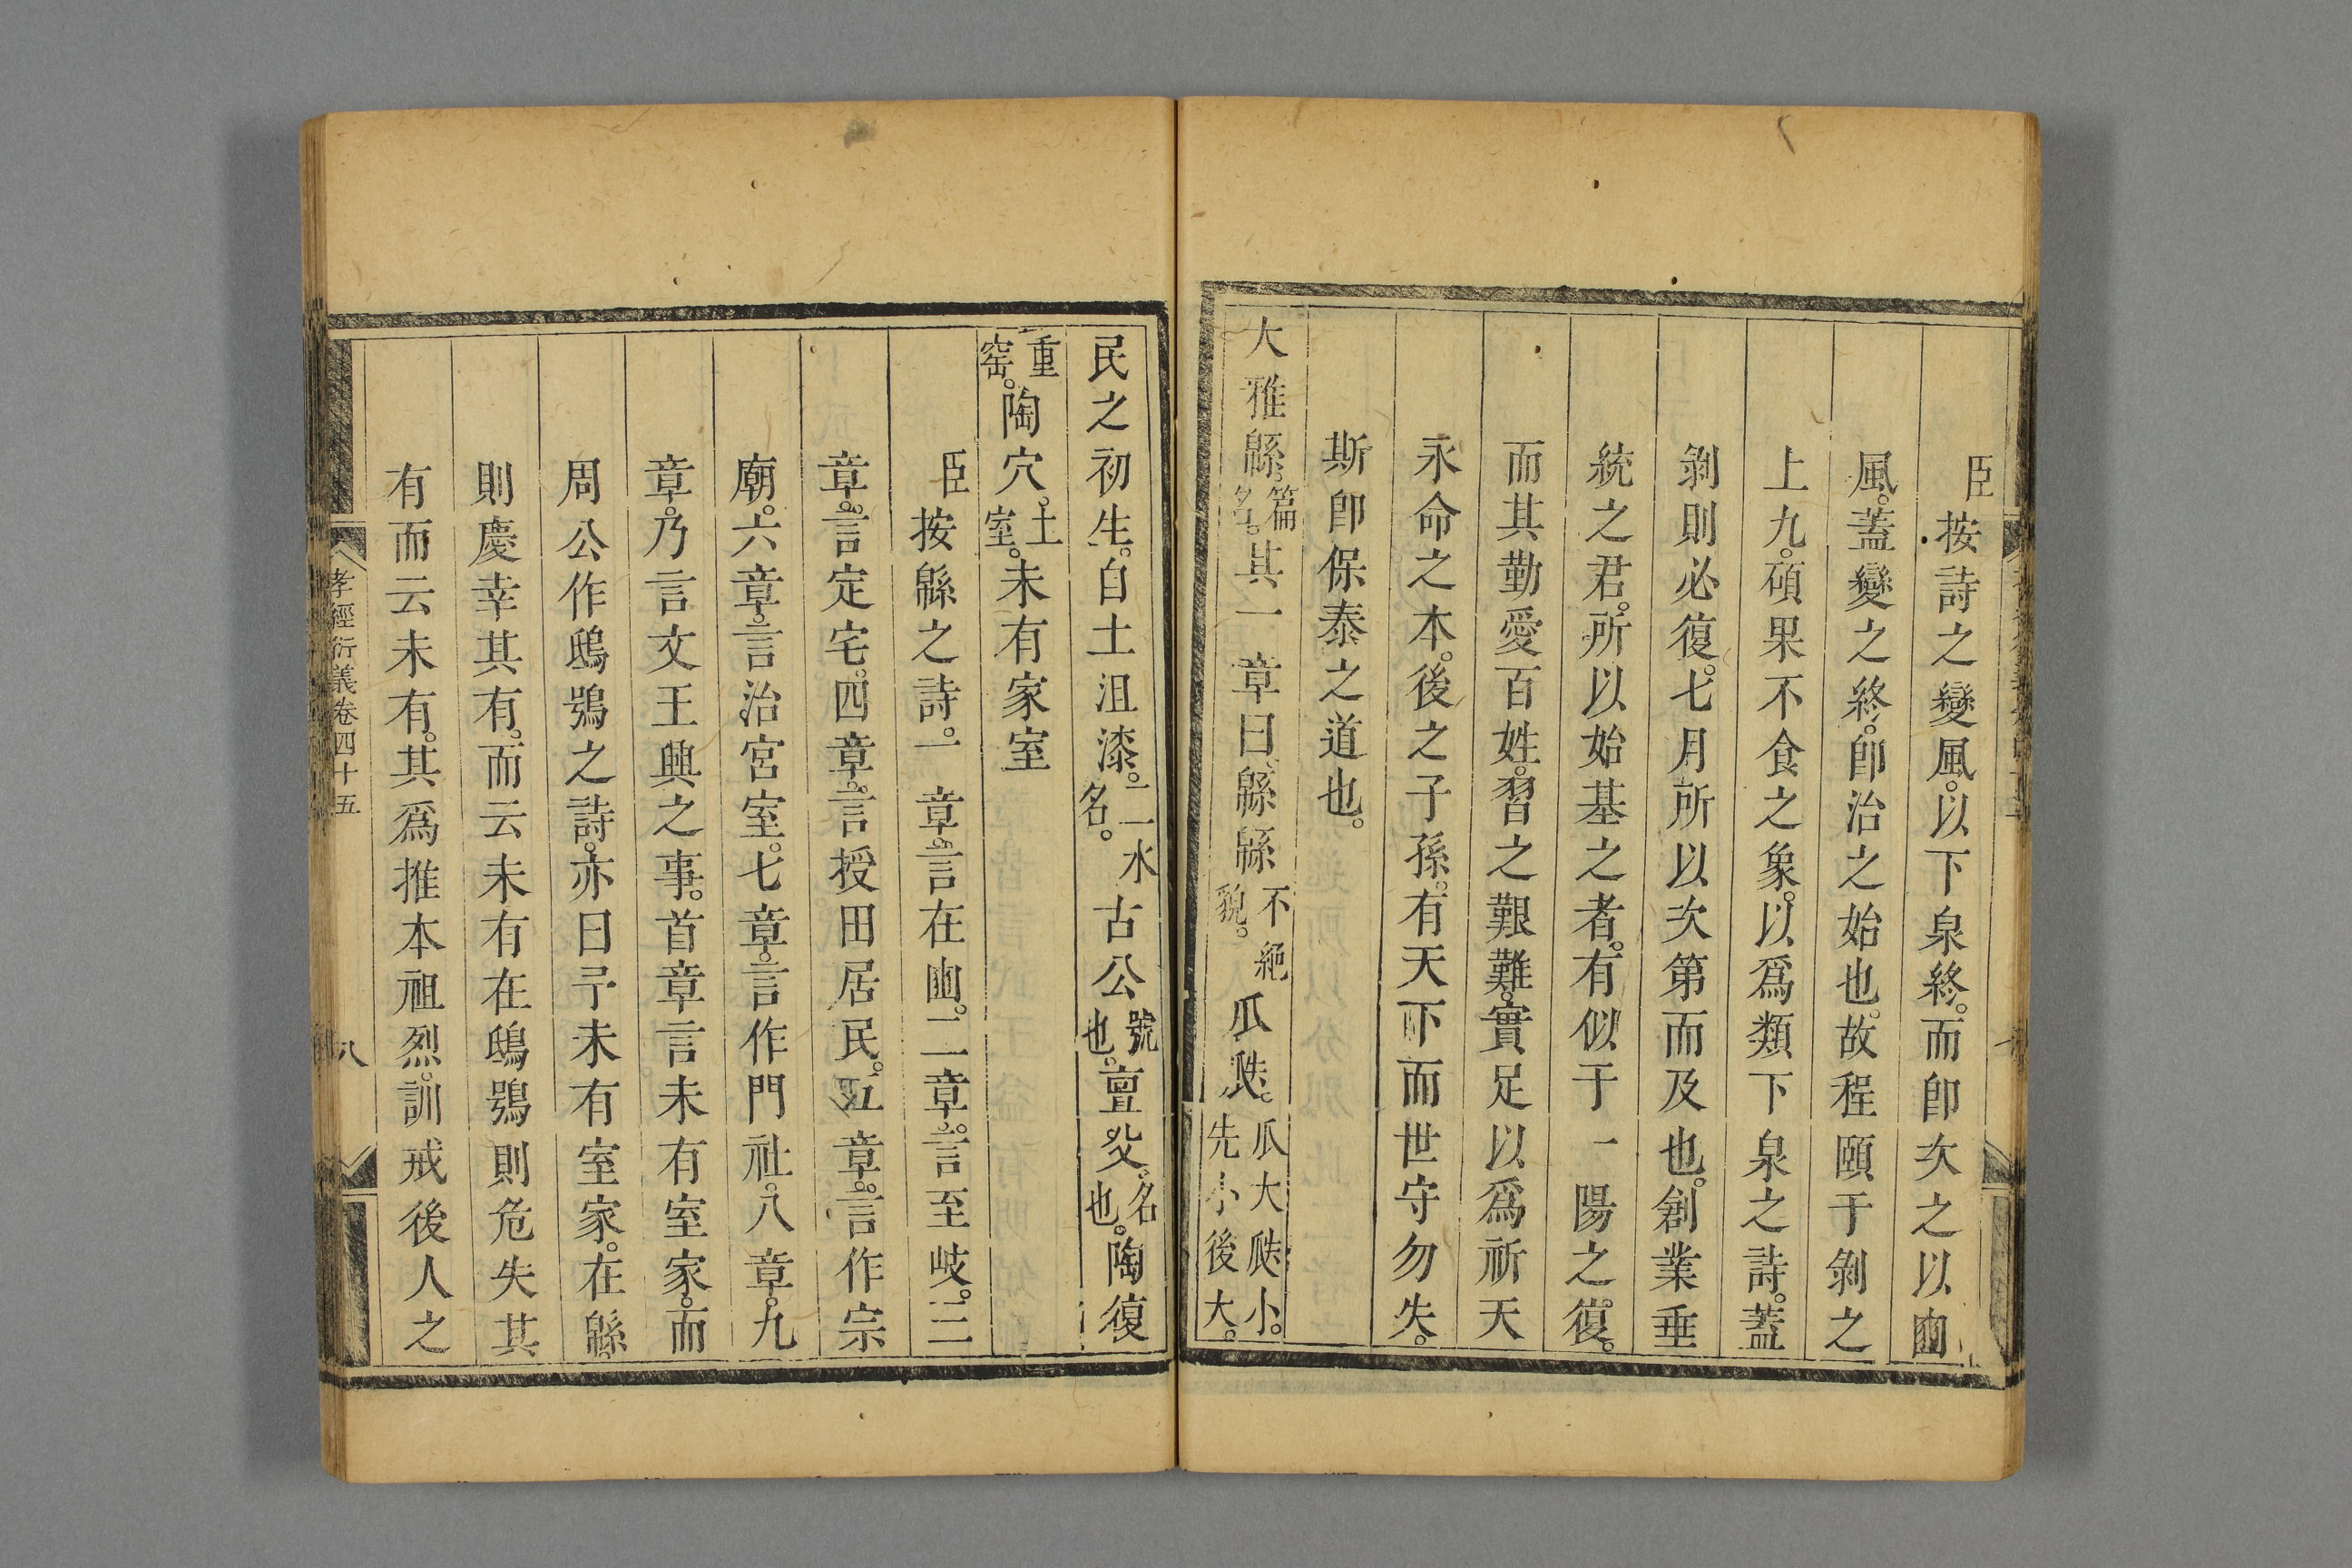 臣按詩之變風。以下泉終。而卽次之以豳
風。蓋變之終。卽治之始也。故程頤于剝之
上九。碩果不食之象。以爲類下泉之詩。蓋
剝則必復。七月所以次第而及也。創業垂
統之君。所以始基之者。有似于一陽之復。
而其勤愛百姓。習之艱難。實足以爲祈天
永命之本。後之子孫。有天下而世守勿失。
斯卽保泰之道也。
大雅緜。篇名。其一章曰、緜緜不絕貌。瓜瓞。瓜大瓞小。先小後大。
民之初生。自土沮漆。二水名。古公號也。亶父。名也。陶復
重窑。陶穴。土室。未有家室
臣按緜之詩。一章。言在豳。二章。言至岐。三
章。言定宅。四章。言授田居民。五章。言作宗
廟。六章。言治宮室。七章。言作門社。八章。九
章。乃言文王興之事。首章言未有室家。而
周公作鴟鴞之詩。亦曰予未有室家。在緜。
則慶幸其有。而云未有在鴟鴞則危失其
有而云未有。其爲推本祖烈。訓戒後人之
孝經衍義卷四十五
八